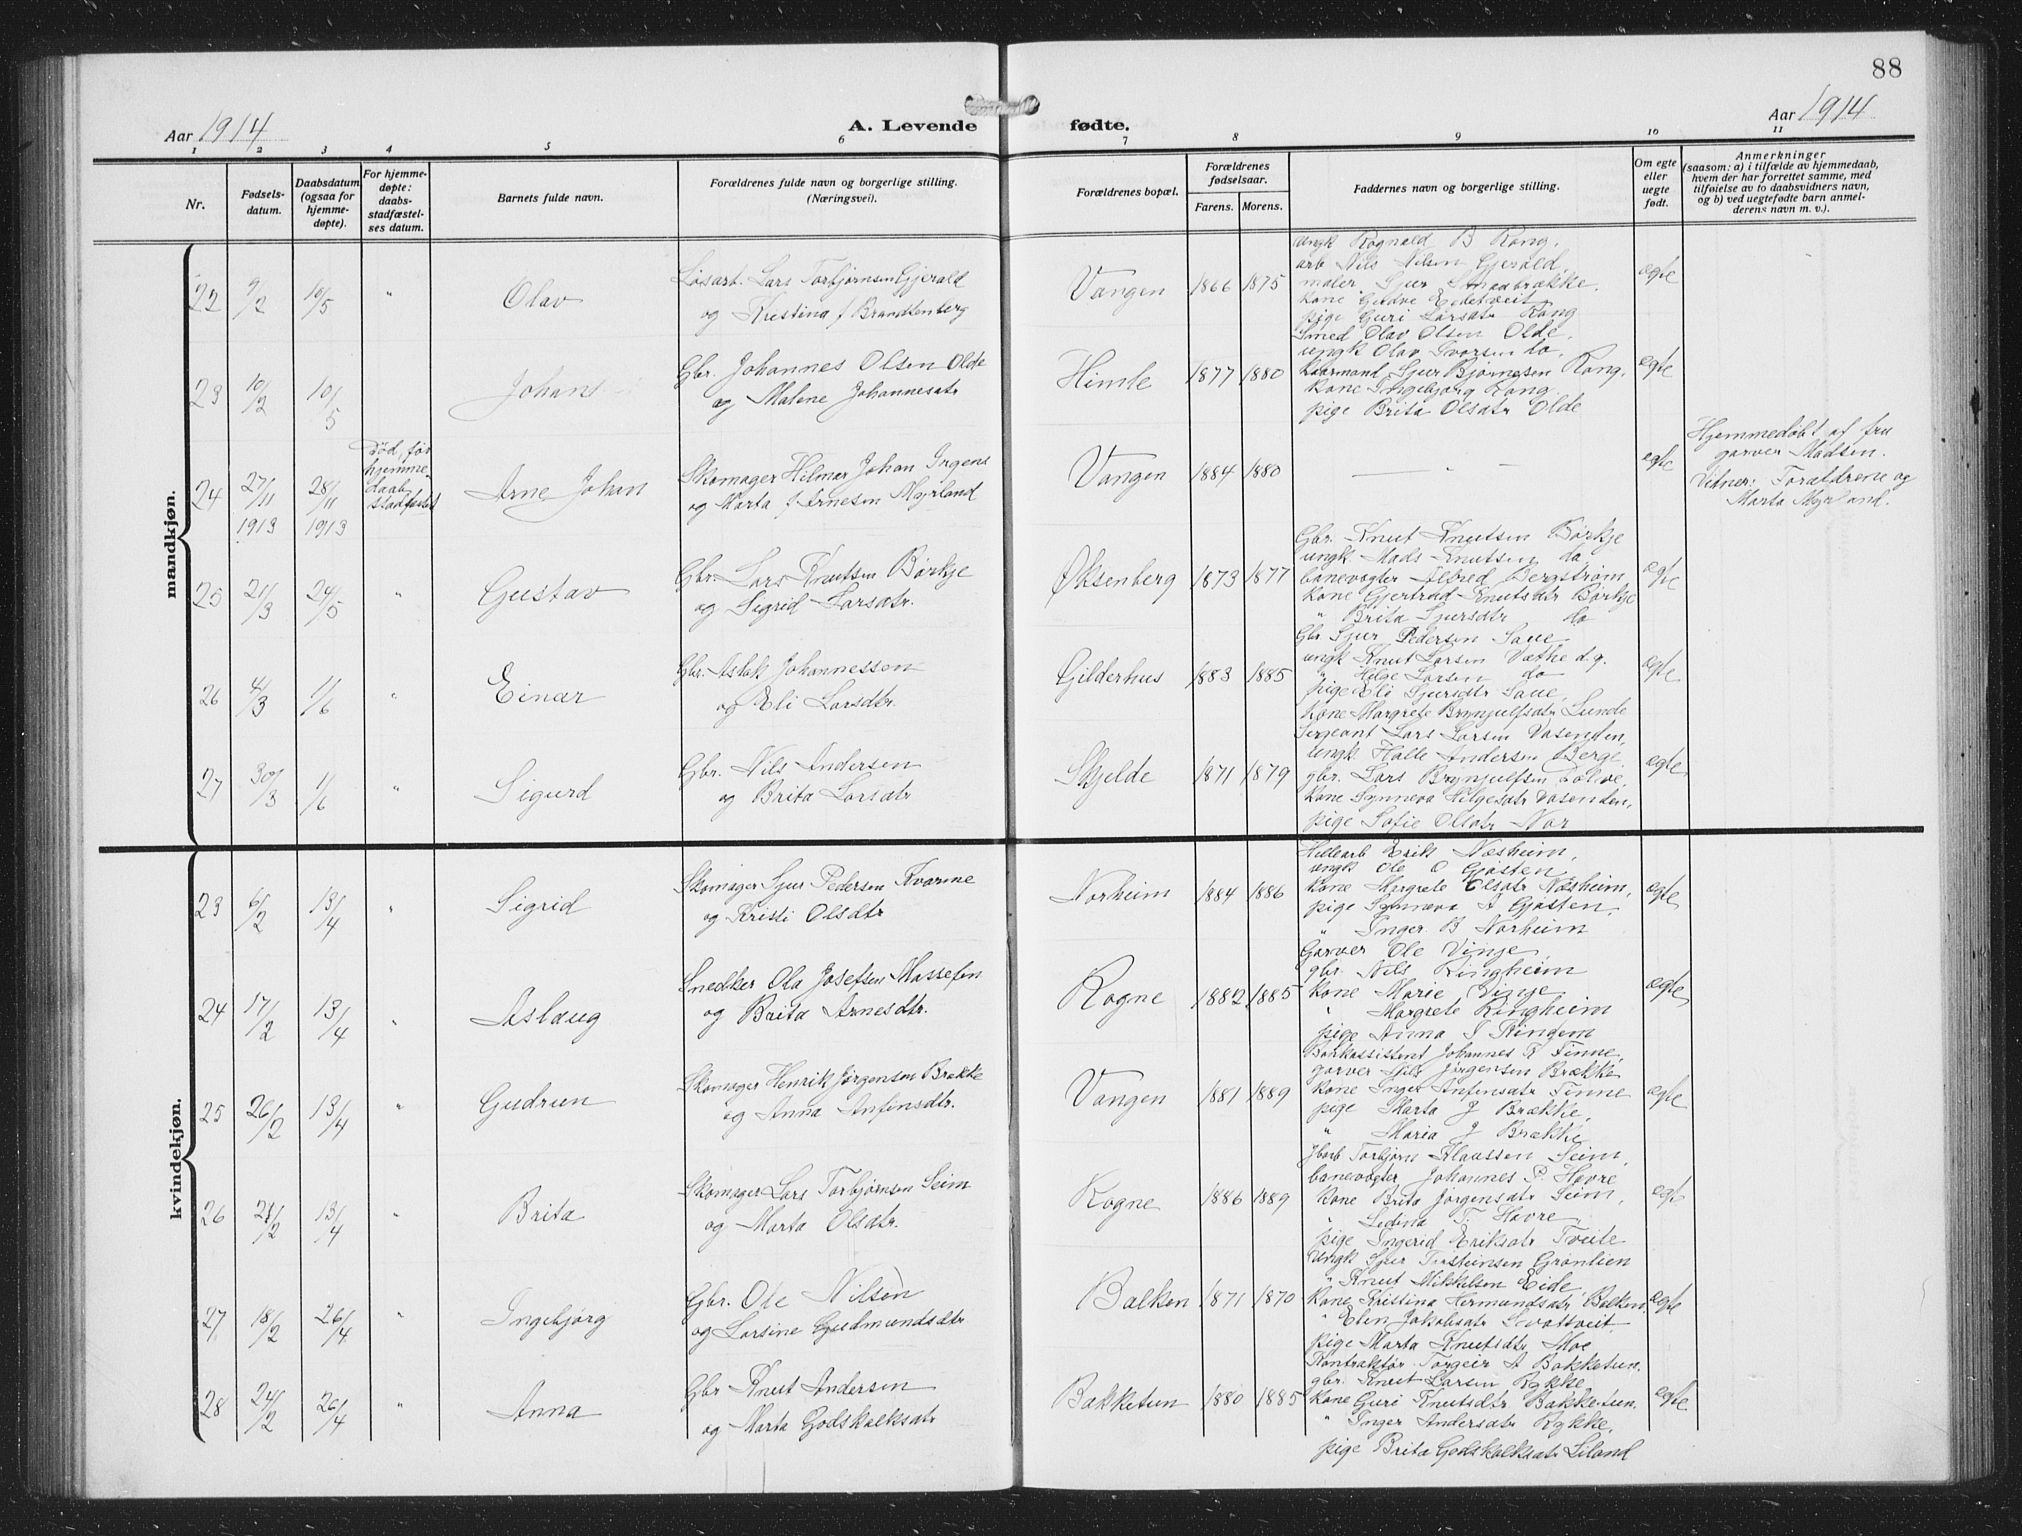 88
Aar 1914
A. Levende fødte.
Aar 1914
1 2 3 4 5 6 7 8 9 10 11
Nr.
Fødsels-
datum.
Daabsdatum
(ogsaa for
hjemme-
døpte).
For hjemme-
døpte:
daabs-
stadfæstel-
ses datum.
Barnets fulde navn.
Forældrenes fulde navn og borgerlige stilling.
(Næringsvei).
Forældrenes bopæl.
Forældrenes
fødselsaar.
Farens. Morens.
Faddernes navn og borgerlige stilling.
Om egte
eller
uegte
født.
Anmerkninger
(saasom: a) i tilfælde av hjemmedaab,
hvem der har forrettet samme, med
tilføielse av to daabsvidners navn,
og b) ved uegtefødte barn anmel-
derens navn m. v.).
mandkjøn.
22 9/2 10/5 " Olav
Løsarb. Lars Torbjørnsen Gjerald
og Kristina f Brandtenberg
Vangen 1866 1875
ungk Rognald B Rong.
arb Nils Nilsen Gjerald
maler Sjur Smaabrække.
kone Gudve Eedetveit
pige Guri Larsdtr Rong
egte
23 10/2 10/5 Johans
Gbr. Johannes Olsen Olde
og Malene Johannesdtr
Himle 1877 1880
Smed Olav Olsen Olde.
ungk Olav Ivarsen do.
kaarmand Sjur Bjørnesen Rong.
kone Ingebjørg Rong
pige Brita Olsdtr Olde
egte
24 27/11 1913 28/11 1913
Død, før
hjemme
daab
stadfæstet
Arne Johan
Skomager Hilmar Johan Irgens
og Marta f Arnesen Myrland
Vangen 1884 1880 — " — egte
Hjemmedøbt af fru
garver Madsen.
Vidner: Forældrene og
Marta Myrland.
25 21/3 24/5 " Gustav
Gbr. Lars Knutsen Børkje
og Sigrid Larsdtr.
Øksenberg 1873 1877
Gbr. Knut Knutsen Børkje
ungk Mads Knutsen do
banevogter Alfred Bergstrøm
kone Gjertrud Knutsdtr Børkje
" Brita Sjursdtr do
egte
26 4/3 1/6 " Einar
Gbr. Aslak Johannessen
og Eli Larsdtr.
Gilderhus 1883 1885
Gbr Sjur Pedersen Saue
ungk Knut Larsen Væthe d.y.
" Helge Larsen do
pige Eli Sjursdtr Saue,
kone Margrete Brynjulfsdtr Lunde
egte
27 30/3 1/6 " Sigurd
Gbr. Nils Andersen
og Brita Larsdtr
Skjelde 1871 1879
Sergeant Lars Larsen Vasenden,
ungk Halle Andersen Berge,
gbr. Lars Brynjulfsen Lølve,
kone Synneva Helgesdtr Vasenden,
pige Sofie Olsdtr Nor
egte
kvindekjøn.
23 6/2 13/4 " Sigrid
Skomager Sjur Pedersen Kvarme
og Kristi Olsdtr
Norheim 1884 1886
Hellearb Erik Næsheim,
ungk Ole O Gjøsten
kone Margrete Olsdtr Næsheim,
pige Synneva A Gjøsten,
" Inger B Norheim
egte
24 17/2 13/4 " Aslaug
Snedker Ola Josefsen Massefen
og Brita Arnesdtr.
Rogne 1882 1885
Garver Ole Vinje
gbr. Nils Ringheim
kone Marie Vinje
" Margrete Ringheim
pige Anna J Ringem
egte
25 26/2 13/4 " Gudrun
Skomager Henrik Jørgensen Brække
og Anna Anfinsdtr.
Vangen 1881 1889
Bankassistent Johannes K Finne,
garver Nils Jørgensen Brække
kone Inger Anfinsdtr Finne
pige Marta J Brække,
" Maria J Brække
egte
26 21/2 13/4 " Brita
Skomager Lars Torbjørnsen Seim
og Marta Olsdtr.
Rogne 1886 1889
Jbarb Torbjørn Klaussen Seim,
banevogter Johannes P. Havre
kone Brita Jørgensdtr Seim,
" Ledina T. Havre
pige Ingerid Eriksdtr Tveite
egte
27 18/2 26/4 " Ingebjørg
Gbr. Ole Nilsen
og Larsine Gudmundsdtr
Balken 1871 1870
ungk Sjur Torsteinsen Grønlien
" Knut Mikkelsen Eide
kone Kristina Hermundsdtr Balken
" Elen Jakobsdtr Svattveit
pige Marta Knutsdtr Moe
egte
28 24/2 26/4 " Anna
Gbr Knut Andersen
og Marta Godskalksdtr
Bakketun 1880 1885
Kontraktør Torgeir A Bakketun,
gbr. Knut Larsen Rykke
kone Guri Knutsdtr Bakketun,
" Inger Andersdtr Rykke,
pige Brita Godskalksdtr Liland
egte